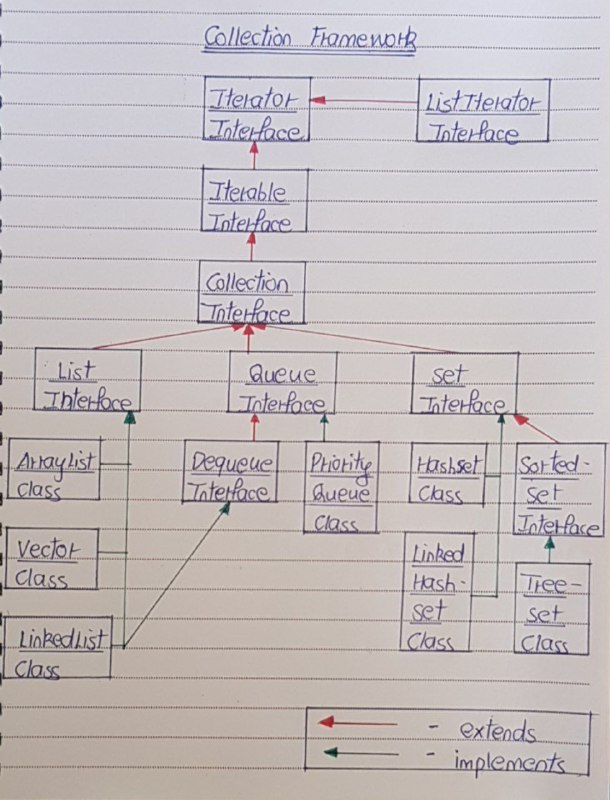 Collection Framework
Iterator
Interface
ListIterator
Interface
Iterable
Interface
Collection
Interface
List
Interface
Queue
Interface
set
Interface
ArrayList
Class
Dequeue
Interface
Priority
Queue
Class
Hashset
Class
Sorted-
set
Interface
Vector
Class
Linked
Hash-
set
Class
Tree-
set
Class
LinkedList
Class
- extends
- implements